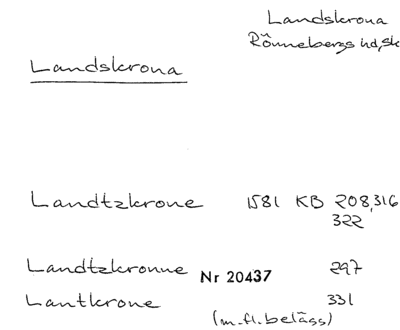 Landskrona
Rönnebergs hd, Sk
Landskrona
Landtzkrone 1581 KB 208, 316
322
Landtzkronne 297
Nr 20437
Lantkrone 331
(m. fl. belägg)